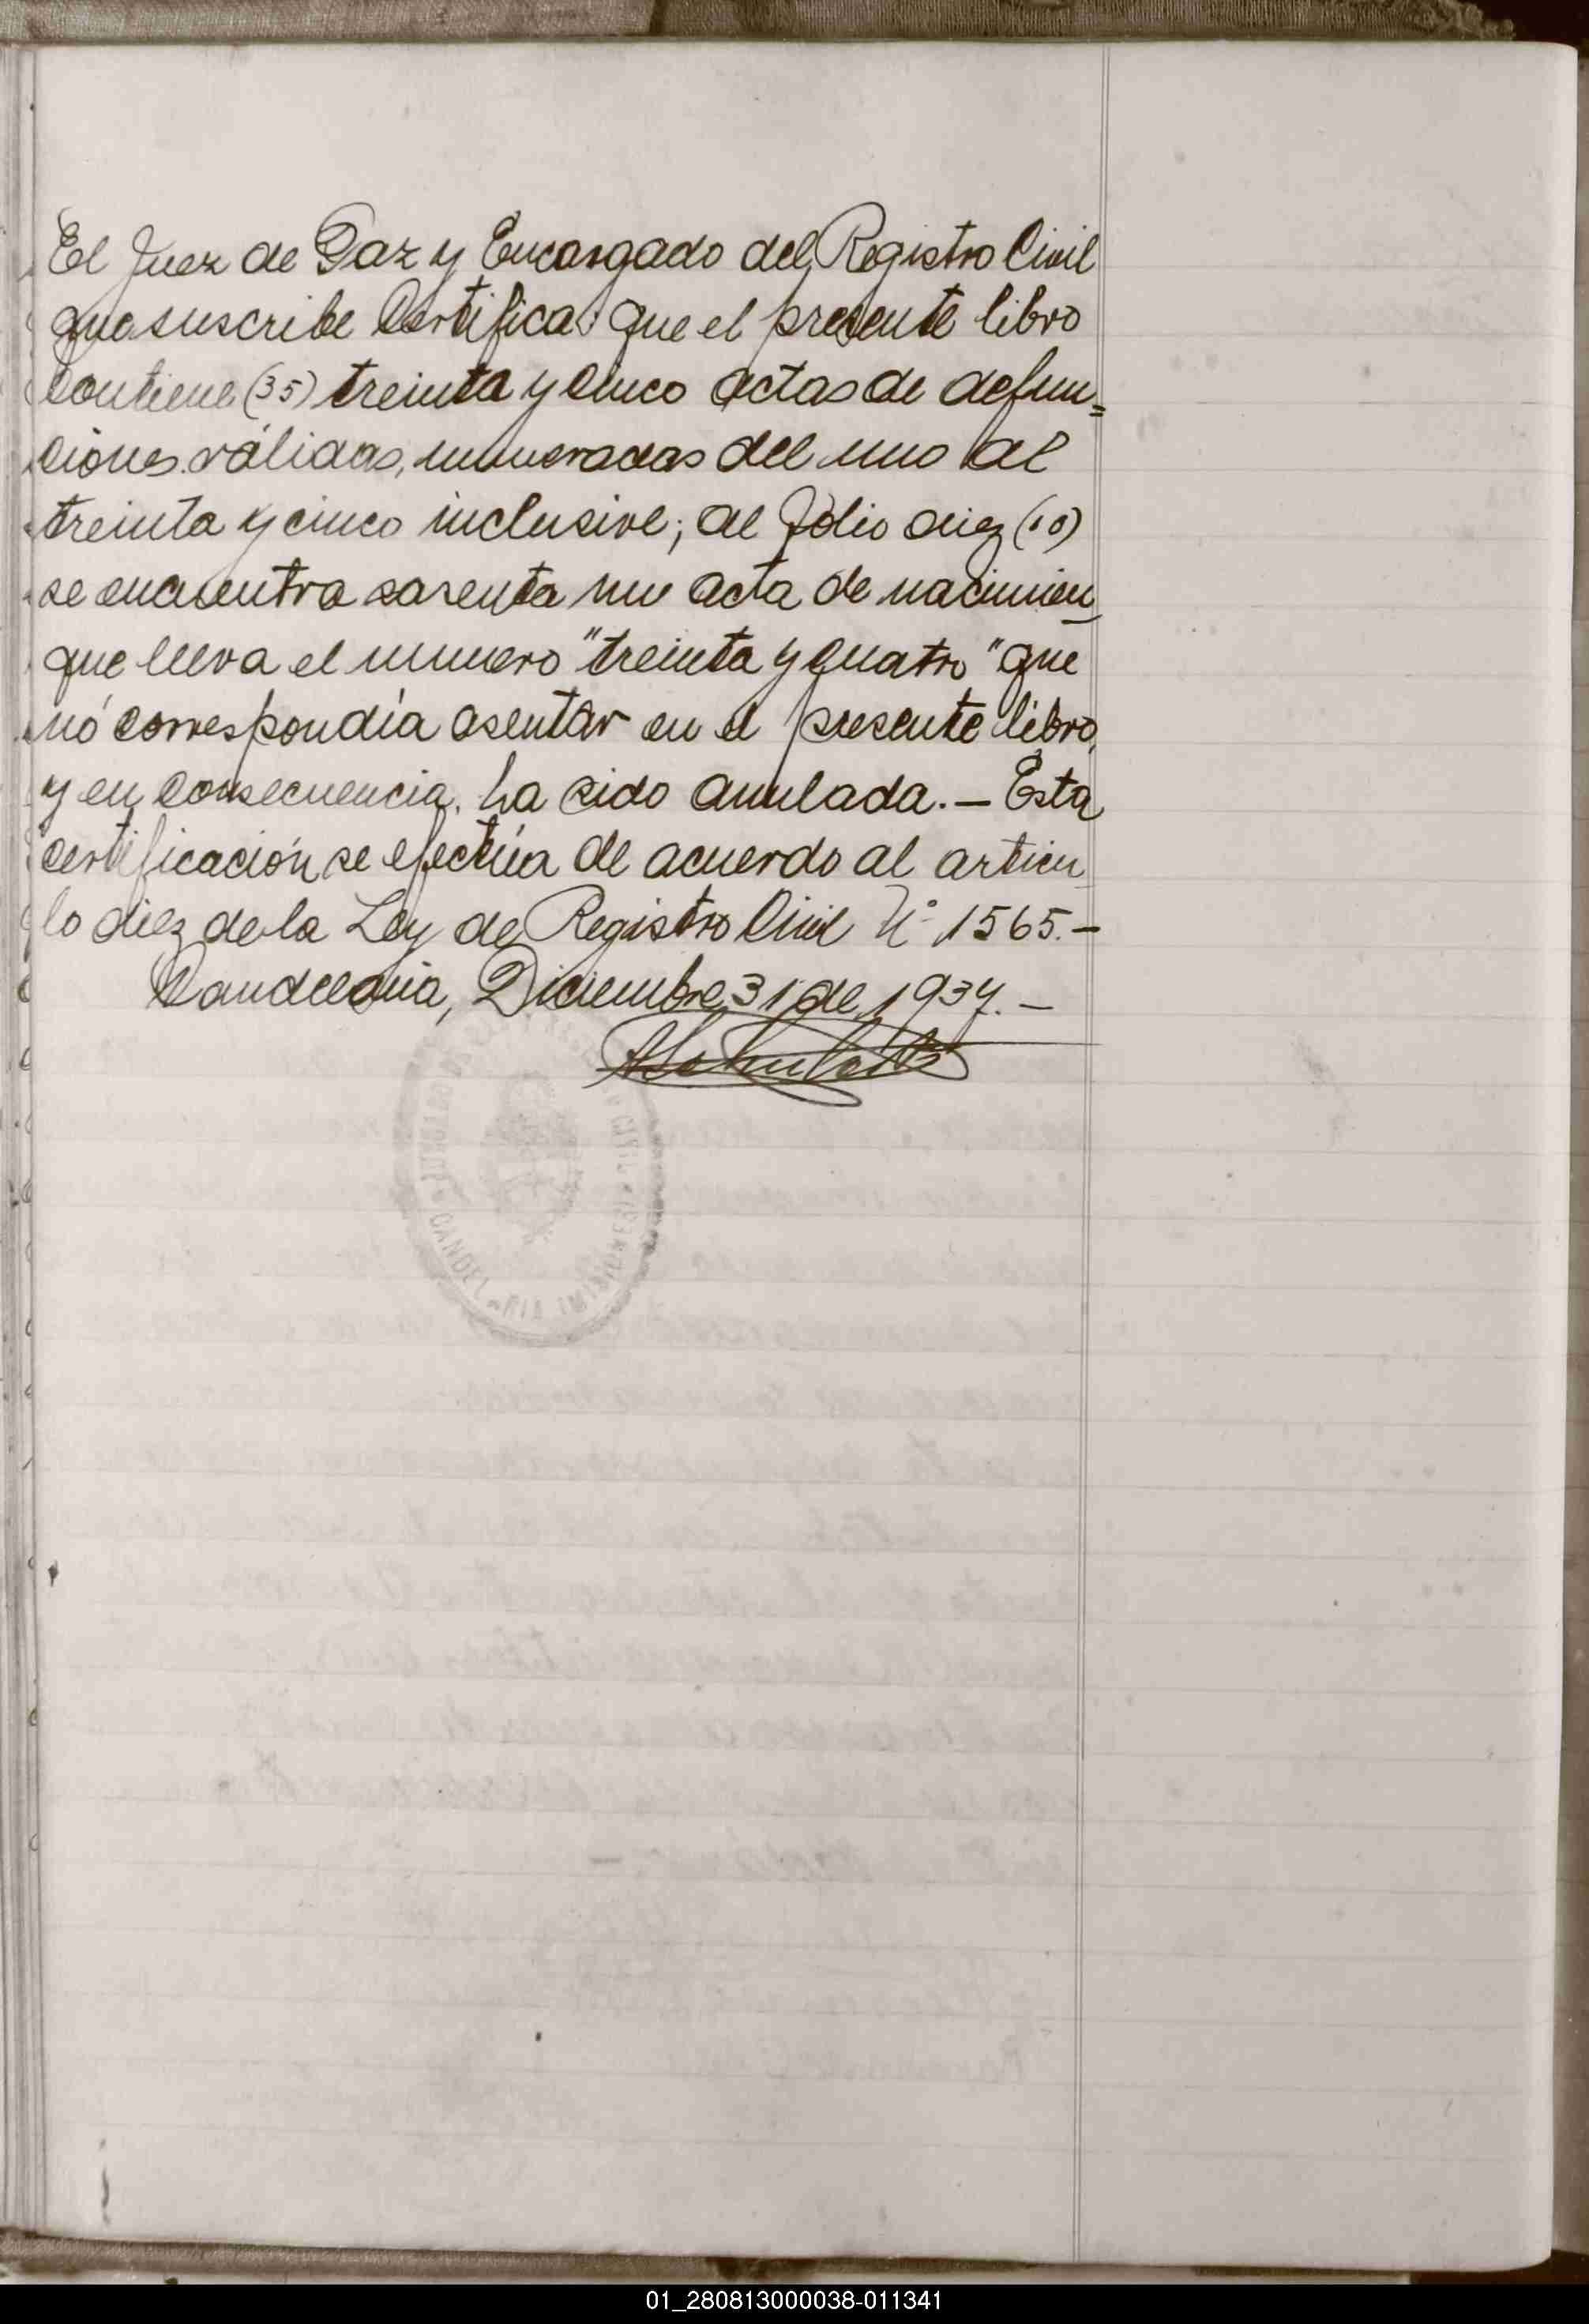 El Juez de Paz y Encargado del Registro Civil
que suscribe Certifica: que el presente libro
contiene (35) treinta y cinco actas de defun=
ciones válidas, numeradas del uno al
treinta y cinco inclusive; al folio diez (10)
se encuentra asenta un acta de nacimien
que lleva el numero "treinta y cuatro" que
nó correspondía asentar en el presente libro,
y en consecuencia, ha sido anulada.— Esta
certificación se efectúa de acuerdo al articu
lo diez de la Ley de Registro Civil N° 1565.—
Candelaria, Diciembre 31 de 1937.—
CANDELARIA (MISIONES)
01_280813000038-011341